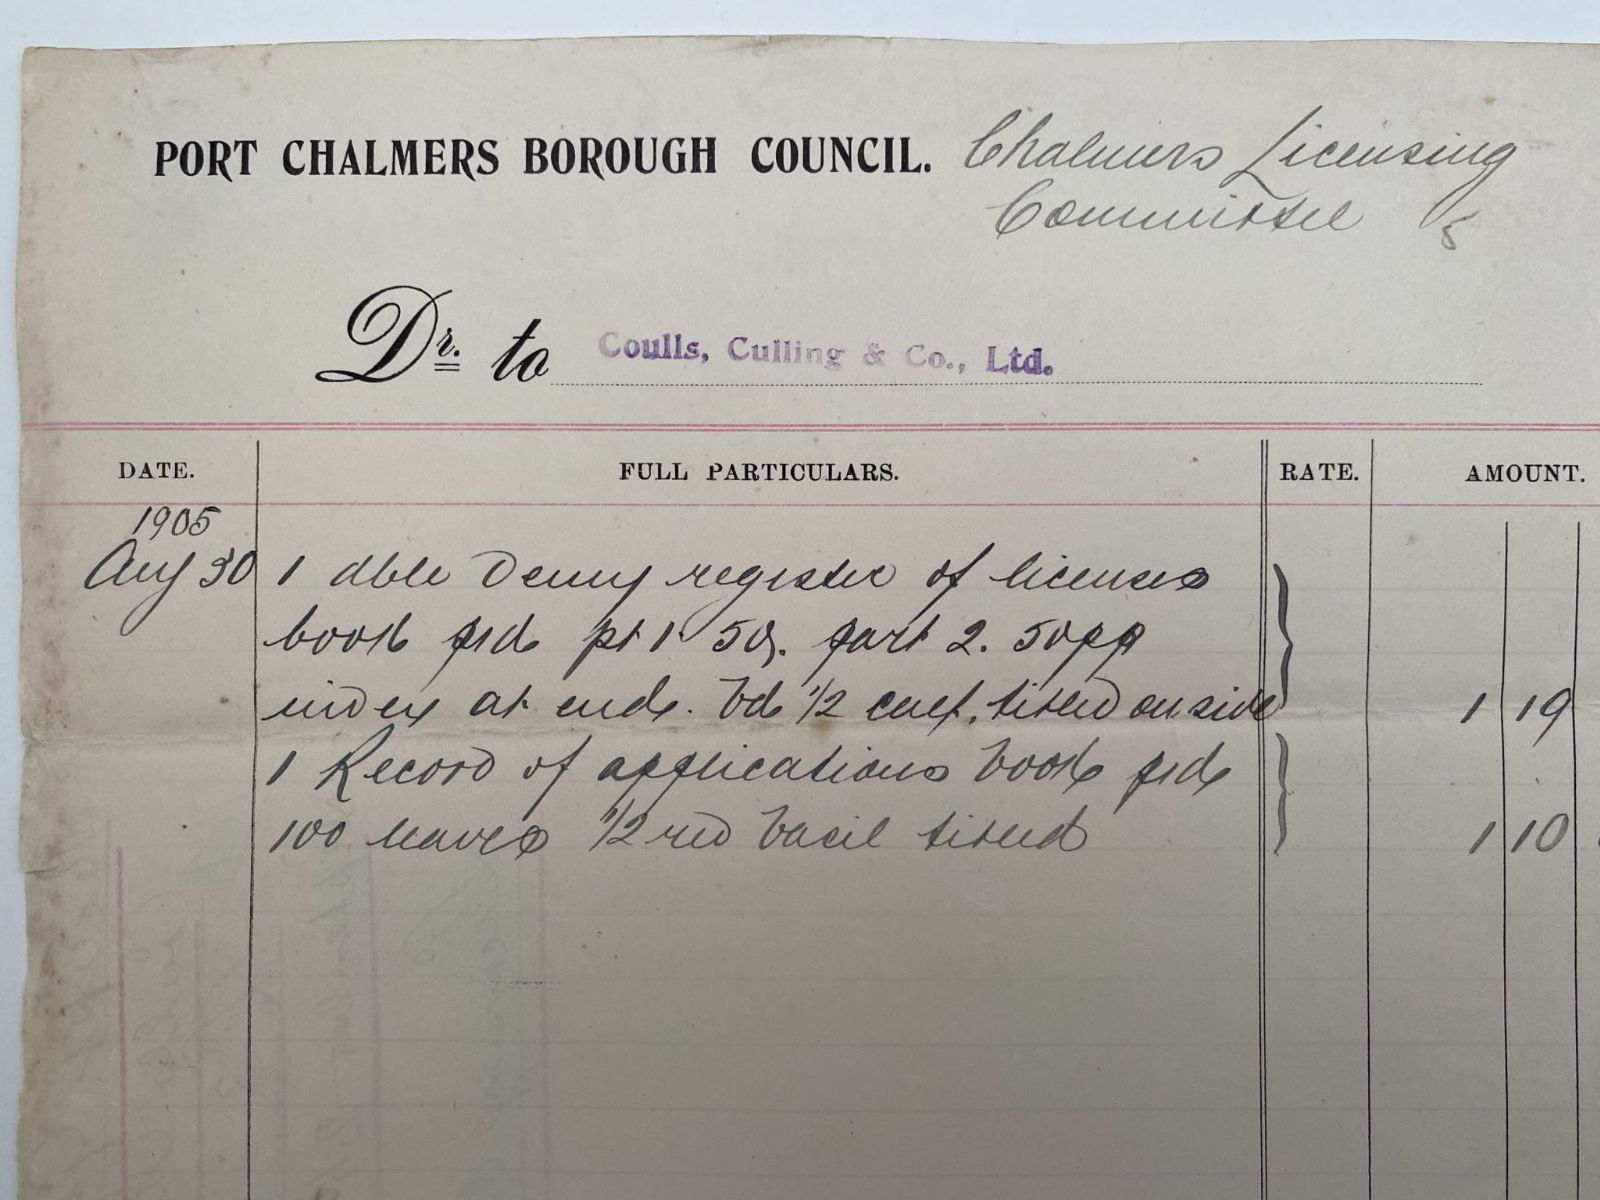 PORT CHALMERS BOROUGH COUNCIL. Chalmers Licensing
Committee
Dr. to Coulls, Culling & Co., Ltd.
DATE. FULL PARTICULARS. RATE. AMOUNT.
1905
Aug 30 1 dble Demy register of licenses
book pgd pt 1 50 part 2. 50pp
index at end. Bd 1/2 calf, titled on side 1 19
1 Record of applications book pgd
100 leaves 1/2 red basil titled 1 10